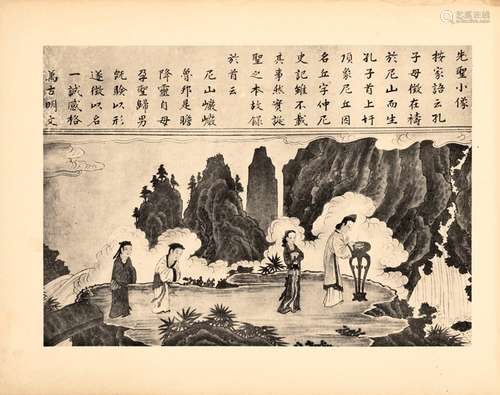 先聖小像
按家語云孔
子母徵在禱
於尼山而生
孔子首上圩
頂象尼丘因
名丘字仲尼
史記雖不載
其事然實誕
聖之本故錄
於首云
尼山巖巖
魯邦是瞻
降靈自母
孕聖歸男
既驗以形
遂徵以名
一誠感格
萬古明文